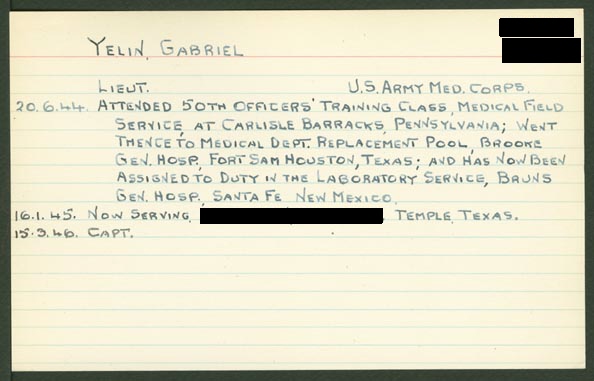 YELIN, GABRIEL
LIEUT. U.S. ARMY MED. CORPS.
20.6.44. ATTENDED 50TH OFFICERS' TRAINING CLASS, MEDICAL FIELD
SERVICE, AT CARLISLE BARRACKS, PENNSYLVANIA; WENT
THENCE TO MEDICAL DEPT. REPLACEMENT POOL, BROOKE
GEN. HOSP., FORT SAM HOUSTON, TEXAS; AND HAS NOW BEEN
ASSIGNED TO DUTY IN THE LABORATORY SERVICE, BRUNS
GEN. HOSP., SANTA FE NEW MEXICO.
16.1.45. NOW SERVING, TEMPLE, TEXAS.
15.3.46. CAPT.